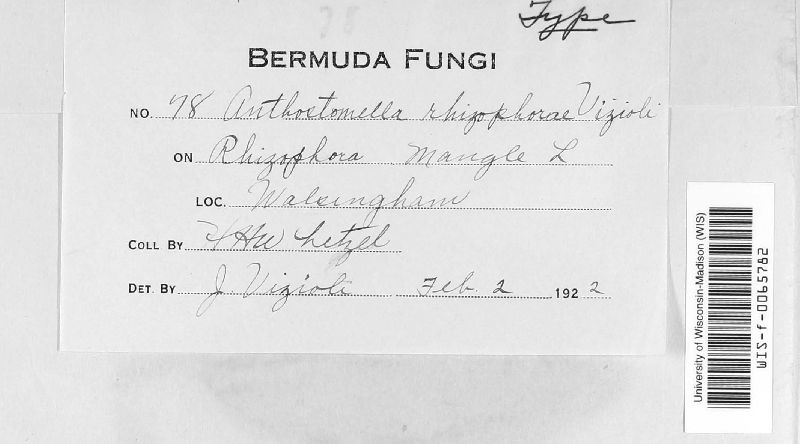 Type
BERMUDA FUNGI
NO. 78 Anthostomella rhizophorae Vizioli
ON Rhizophora Mangle L
LOC. Walsingham
COLL BY HHW
DET. BY J Vizioli Feb. 2 1922
University of Wisconsin-Madison (WIS)
WIS-f-0065782